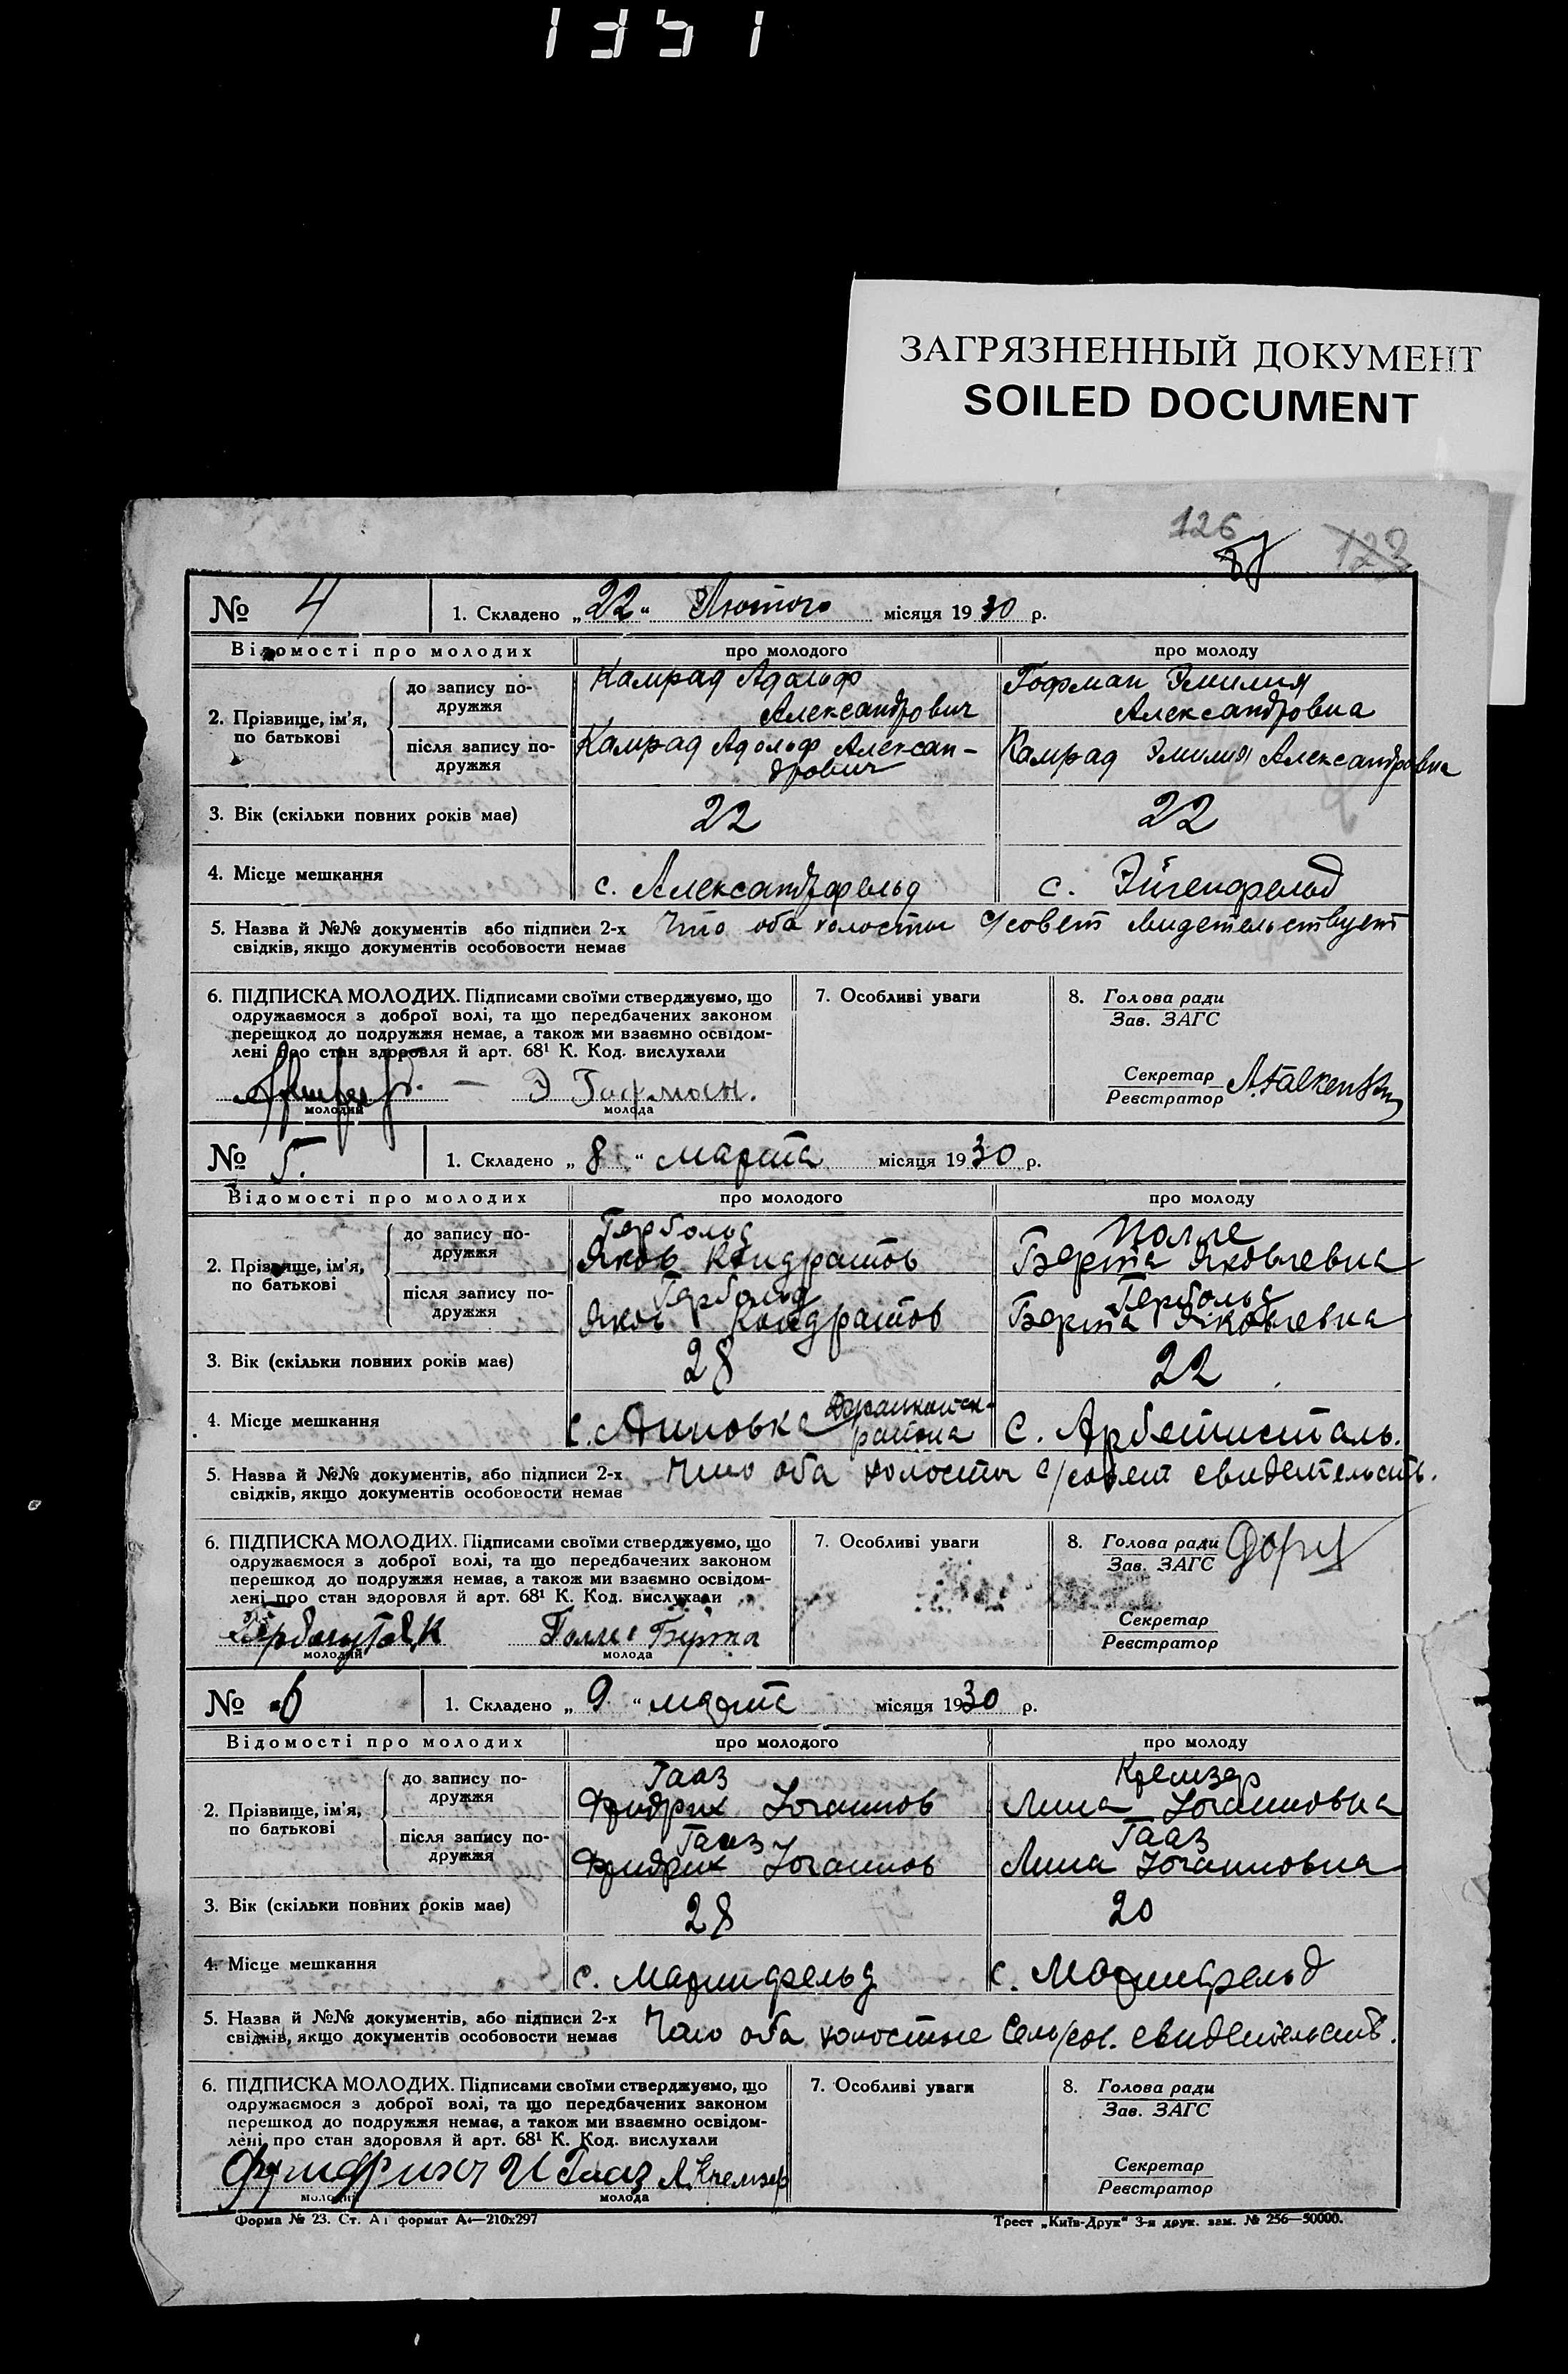 1351
ЗАГРЯЗНЕННЫЙ ДОКУМЕНТ
SOILED DOCUMENT
126
123
№ 4 1. Складено „22“ Лютого місяця 1930 р.
Відомості про молодих про молодого про молоду
2. Прізвище, ім'я, по батькові
до запису по-
дружжя
Камрад Адольф
Александрович
Гофман Эмилия
Александровна
після запису по-
дружжя
Камрад Адольф Алексан-
дрович
Камрад Эмилия Александровна
3. Вік (скільки повних років має) 22 22
4. Місце мешкання с. Александрфельд с. Эйгенфельд
5. Назва й №№ документів або підписи 2-х Что оба холосты с/совет свидетельствует
свідків, якщо документів особовости немає
6. ПІДПИСКА МОЛОДИХ. Підписами своїми стверджуємо, що
одружаємося з доброї волі, та що передбачених законом
перешкод до подружжя немає, а також ми взаємно освідом-
лені про стан здоровля й арт. 68¹ К. Код. вислухали
Э Гофман.
молодий молода
7. Особливі уваги
8. Голова ради
Зав. ЗАГС
Секретар
Реєстратор
№ 5. 1. Складено „8“ марта місяця 1930 р.
Відомості про молодих про молодого про молоду
2. Прізвище, ім'я,
по батькові
до запису по-
дружжя
Гербольд
Яков Кондратов
Полле
Берта Яковлевна
після запису по-
дружжя
Гербольд
Яков Кондратов
Гербольд
Берта Яковлевна
3. Вік (скільки повних років має) 28 22
4. Місце мешкання района с. Арбетисталь.
5. Назва й №№ документів, або підписи 2-х Что оба холосты с/совет свидетельств.
свідків, якщо документів особовости немає
6. ПІДПИСКА МОЛОДИХ. Підписами своїми стверджуємо, що
одружаємося з доброї волі, та що передбачених законом
перешкод до подружжя немає, а також ми взаємно освідом-
лені про стан здоровля й арт. 68¹ К. Код. вислухали
Берта
молодий молода
7. Особливі уваги
8. Голова ради
Зав. ЗАГС
Секретар
Реєстратор
№ 6 1. Складено „9“ марта місяця 1930 р.
Відомості про молодих про молодого про молоду
2. Прізвище, ім'я,
по батькові
до запису по-
дружжя
Гааз
Фридрих Иоганнов
Кремзер
Лина Иоганновна
після запису по-
дружжя
Гааз
Фридрих Иоганнов
Гааз
Лина Иоганновна
3. Вік (скільки повних років має) 28 20
4. Місце мешкання с. Мариинфельд с. Мариинфельд
5. Назва й №№ документів, або підписи 2-х Что оба холостые Сель/сов. свидетельств.
свідків, якщо документів особовости немає
6. ПІДПИСКА МОЛОДИХ. Підписами своїми стверджуємо, що
одружаємося з доброї волі, та що передбачених законом
перешкод до подружжя немає, а також ми взаємно освідом-
лені про стан здоровля й арт. 68¹ К. Код. вислухали
И Гааз Л. Кремзер
молодий молода
7. Особливі уваги
8. Голова ради
Зав. ЗАГС
Секретар
Реєстратор
Форма № 23. Ст. А1 формат А4—210x297 Трест „Київ-Друк“ 3-я друк. зам. № 256—50000.